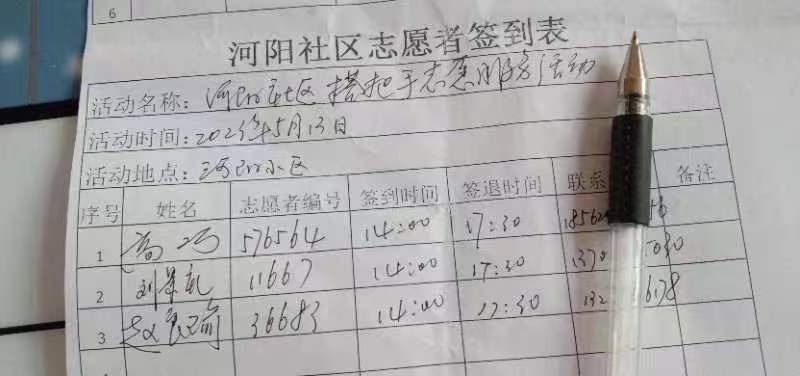 6
河阳社区志愿者签到表
活动名称：河阳社区搭把手志愿服务活动
活动时间：2023年5月13日
活动地点：河阳小区
序号 姓名 志愿者编号 签到时间 签退时间 联系 备注
1 高巧 576564 14:00 17:30
2 11667 14:00 17:30 1370
3 36683 14:00 17:30 132 6178